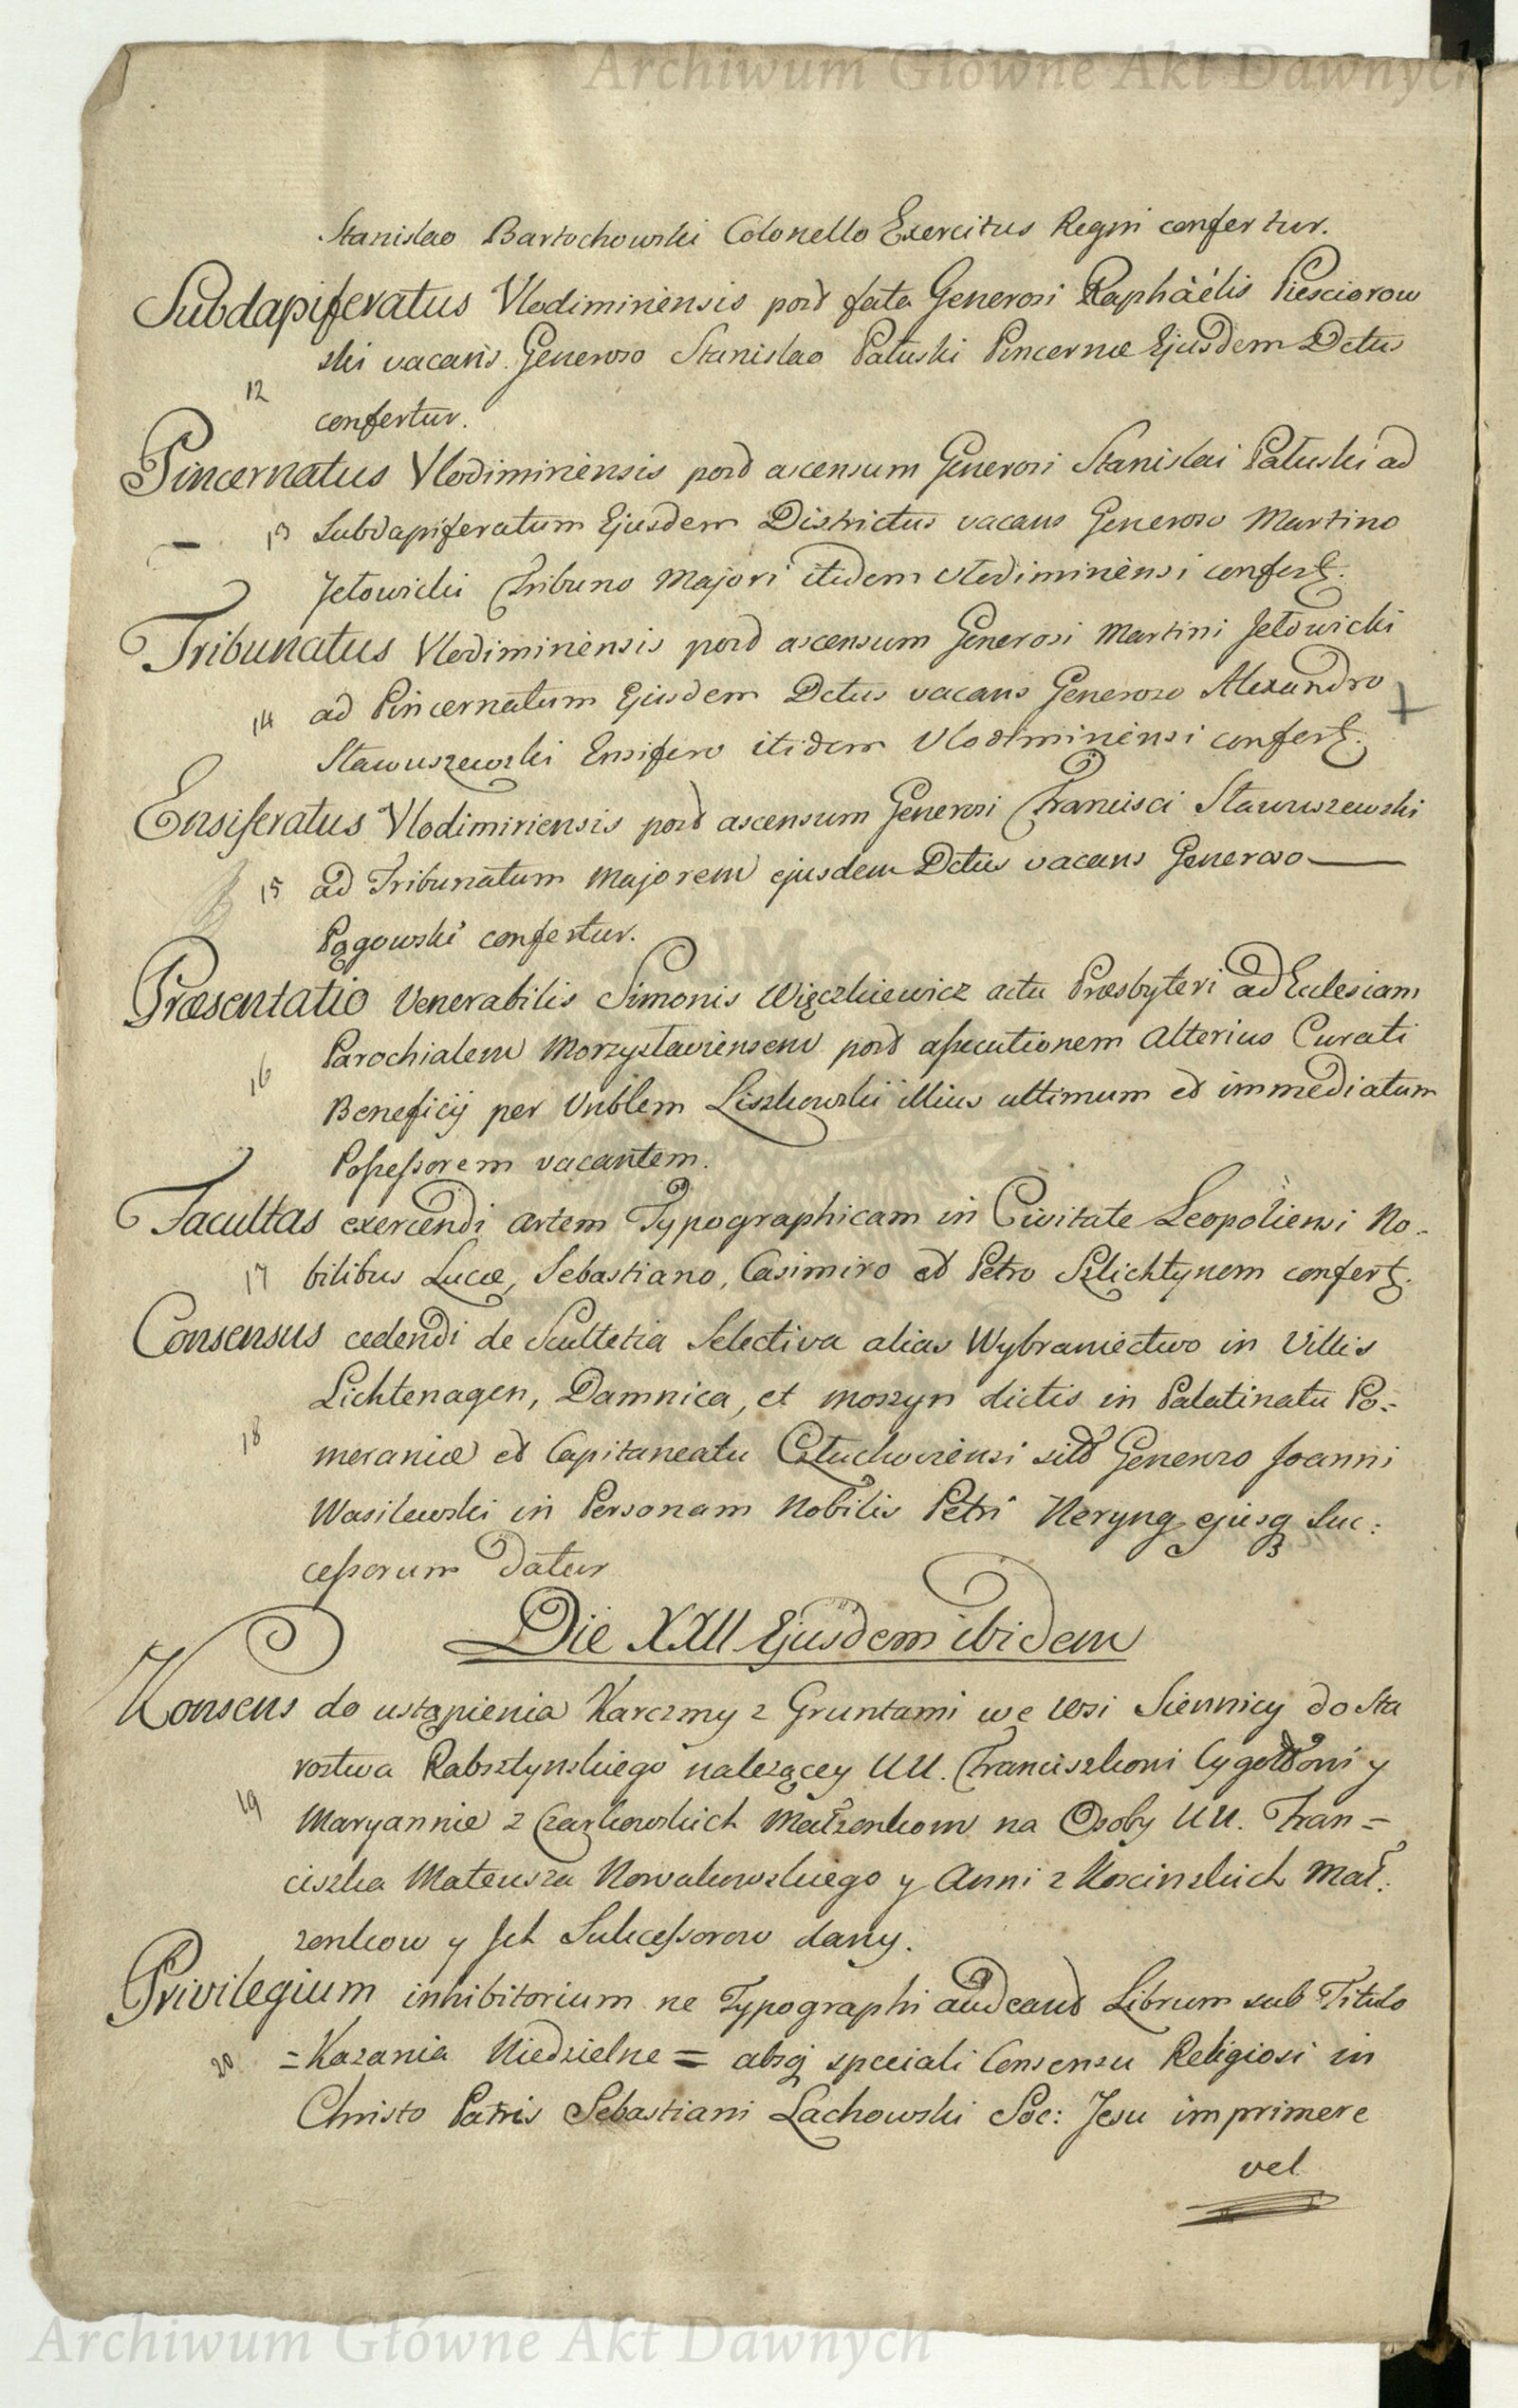 Archiwum Główne Akt Dawnych
Stanislao Bartochowski Colonello Exercitus Regni confertur.
Subdapiferatus Vlodimiriensis post fata Generosi Raphaëlis Piesciorow
ski vacans. Generoso Stanislao Pałuski Pincernæ Ejusdem Dctus
12
confertur.
Pincernatus Vlodimiriensis post ascensum Generosi Stanislai Pałuski ad
13 Subdapiferatum Ejusdem Districtus vacans Generoso Martino
Jełowicki Tribuno Majori itidem Vlodimiriensi confert:
Tribunatus Vlodimiriensis post ascensum Generosi Martini Jełowicki
14 ad Pincernatum Ejusdem Dctus vacans Generoso Alexandro
Stawuszewski Ensifero itidem Vlodimiriensi confert:
Ensiferatus Vlodimiriensis post ascensum Generosi Francisci Stawuszewski
15 ad Tribunatum Majorem ejusdem Dctus vacans Generoso
Pągowski confertur.
Præsentatio Venerabilis Simonis Więczkiewicz actu Præsbyteri ad Eclesiam
16 Parochialem Morzysłaviensem post assecutionem alterius Curati
Beneficij per Vnblem Liszkowski illius ultimum et immediatum
Possessorem vacantem.
Facultas exercendi artem Typographicam in Civitate Leopoliensi No-
17 bilibus Lucæ, Sebastiano, Casimiro et Petro Szlichtynom confert:
Consensus cedendi de Scultetia Selectiva alias Wybraniectwo in Villis
Lichtenagen, Damnica, et Moszyn dictis in Palatinatu Po:
18 meraniæ et Capitaneatu Człuchoviensi sit Generoso Joanni
Wasilewski in Personam Nobilis Petri Neryng ejusq Suc:
cessorum datur
Die XXII Ejusdem ibidem
Konsens do ustąpienia Karczmy z Gruntami we Wsi Siennicy do Sta
rostwa Rabsztynskiego nalezącey UU. Franciszkowi Cygołtowi y
19 Maryannie z Czaykowskich Małzonkom na Osoby UU. Fran=
ciszka Mateusza Nowakowskiego y Anni z Koscinskich Mał:
zonkow y Jch Sukcessorow dany.
Privilegium inhibitorium ne Typographi audeant Librum sub Titulo
20 =Kazania Niedzielne= absq speciali Consensu Religiosi in
Christo Patris Sebastiani Lachowski Soc: Jesu imprimere
vel
Archiwum Główne Akt Dawnych